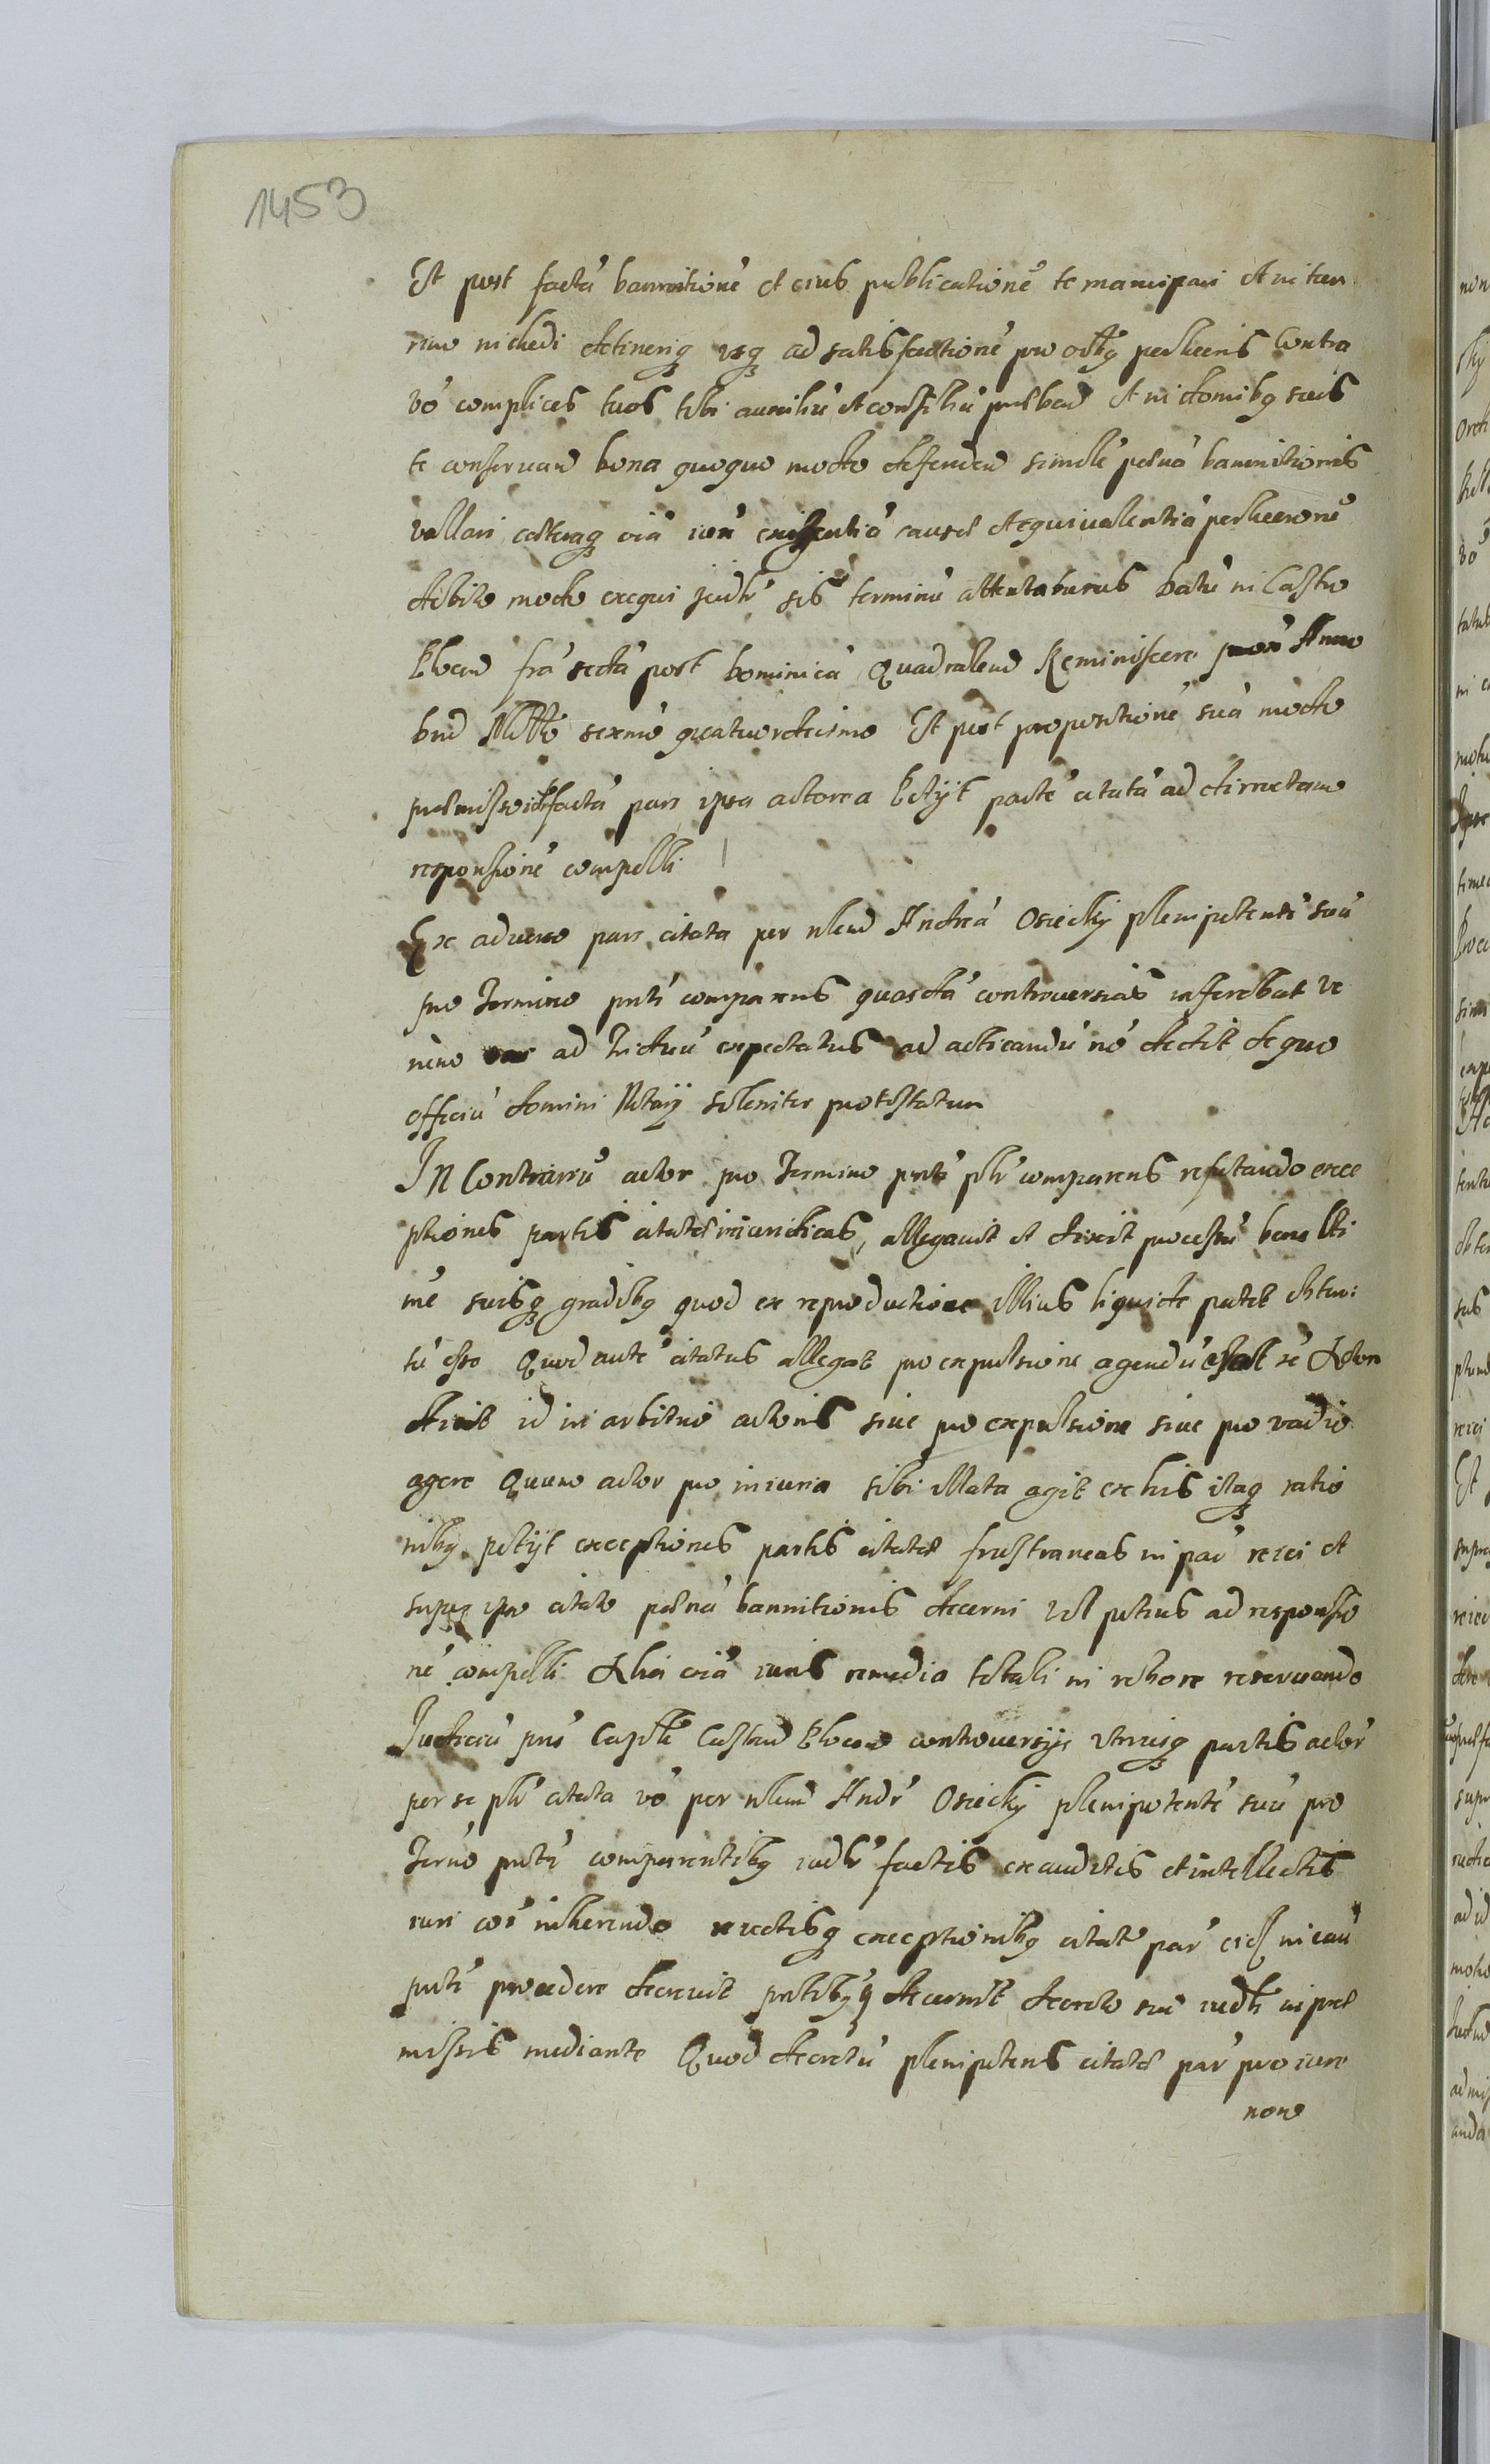 1453
Et post factā bannitionē et eius publicationē te mancipari et in tur
rim includi detineriq usq ad satisfactionē pro oībq
vō complices tuos tibi auxiliū et consiliū praebend et in domibq suis
te conseruand bona quoque modo defendend simile poena bannitionis
vallari coetraq oīa iurī exigentiā causae et equiualentiā
debito modo exequi judr sis terminū attentaturus Datū in Castro
frā sexta post Dominicā Quadralend Reminiscere Anno
Dnī Millo sexmo quatuordecimo Et post propositionē suā modo
praemisso factā pars ipsa actorea Petijt partē citatā ad directam
responsionē compelli
Ex aduerso pars citata per nlem Andreā Osiecky plenipotentē suū
pro Termino pntī comparens quasdā controuersias inferebat ve
rum ad Inductū expectatus ad acticandū nō dedit de quo
officiū domini Notarij solenniter protestatur
In Contrariū actor pro Termino pntī plr comparens refutando exce
ptiones partis citatae iniuridicas, allegauit et dixit processū bene
mē suisq gradibq quod ex reproductione illius liquide patet obten:
tū esse Quod autē citatus allegat pro expulsione agendū esset
dicit id in arbitrio actoris siue pro expulsione siue pro vadio
agere Quum actor pro iniuria sibi illata agit ex his itaq ratio
nibq petijt exceptiones partis citatae frustraneas reici et
super ipso citato poenā bannitionis decerni vel potius ad responsio
nē compelli oīa iuris remedia totali in robore reseruando
Judiciū pns Capitle Castrn controuersijs utriusq partis actor
per se plr citata vō per nlem Andr Osiecky plenipotentē suū pro
Termo pntī comparentibq iudlr factis exauditis et intellectis
iuri coī inherendo reiectisq exceptionibq citatae par in cau
pntī procedere decreuit decernit decreto suo in prae
missis mediante Quod decretū plenipotens citatae par pro iure
non